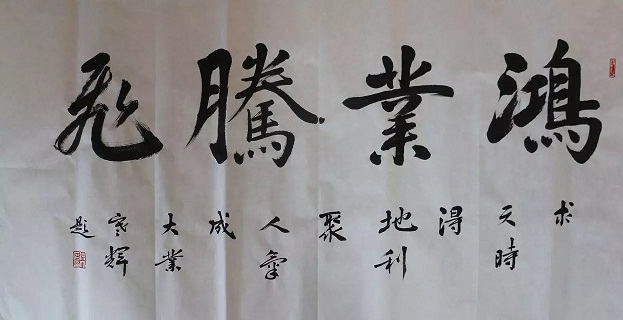 鴻業騰飛
求天時得地利聚人氣成大業
家輝題